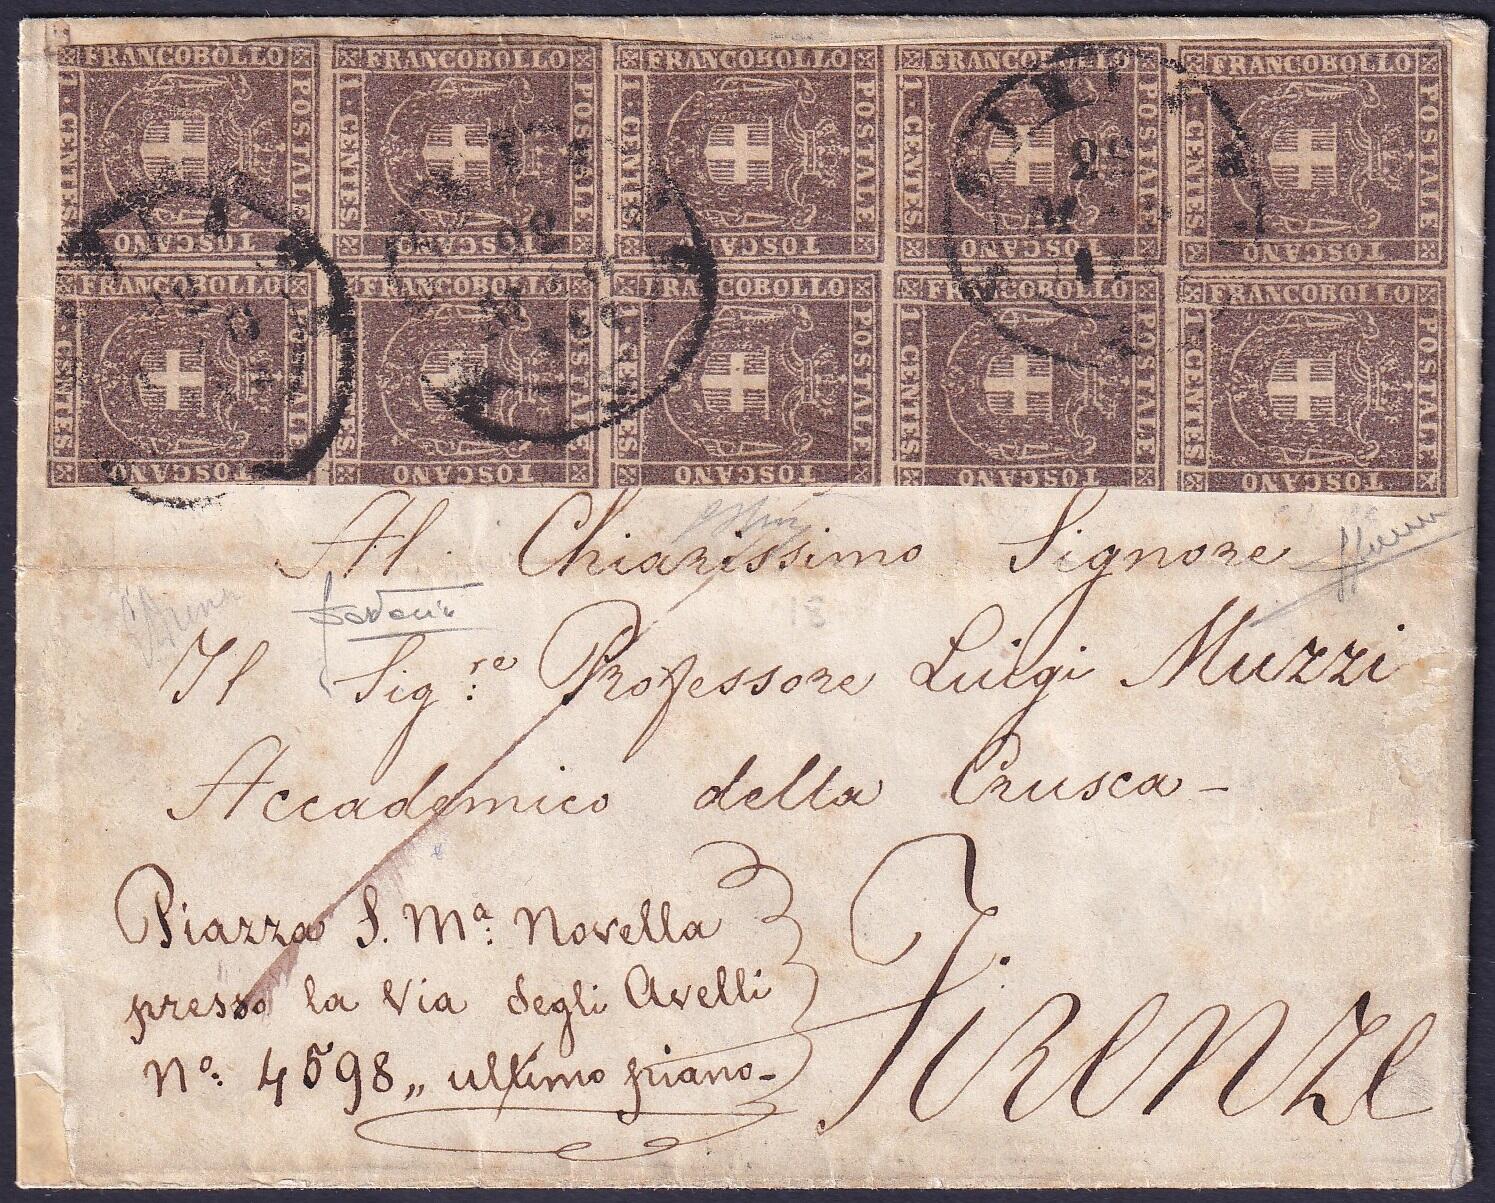 FRANCOBOLLO FRANCOBOLLO FRANCOBOLLO FRANCOBOLLO FRANCOBOLLO
1 CENTES. POSTALE 1 CENTES. POSTALE 1 CENTES. POSTALE 1 CENTES. POSTALE 1 CENTES. POSTALE
TOSCANO TOSCANO TOSCANO TOSCANO TOSCANO
FRANCOBOLLO FRANCOBOLLO FRANCOBOLLO FRANCOBOLLO FRANCOBOLLO
1 CENTES. POSTALE 1 CENTES. POSTALE 1 CENTES. POSTALE 1 CENTES. POSTALE 1 CENTES. POSTALE
TOSCANO TOSCANO TOSCANO TOSCANO TOSCANO
Al Chiarissimo Signore
Il Sig.re Professore Luigi Muzzi
Accademico della Crusca -
Piazza S. Ma: Novella
presso la Via degli Avelli
No: 4598,, ultimo piano-
Firenze